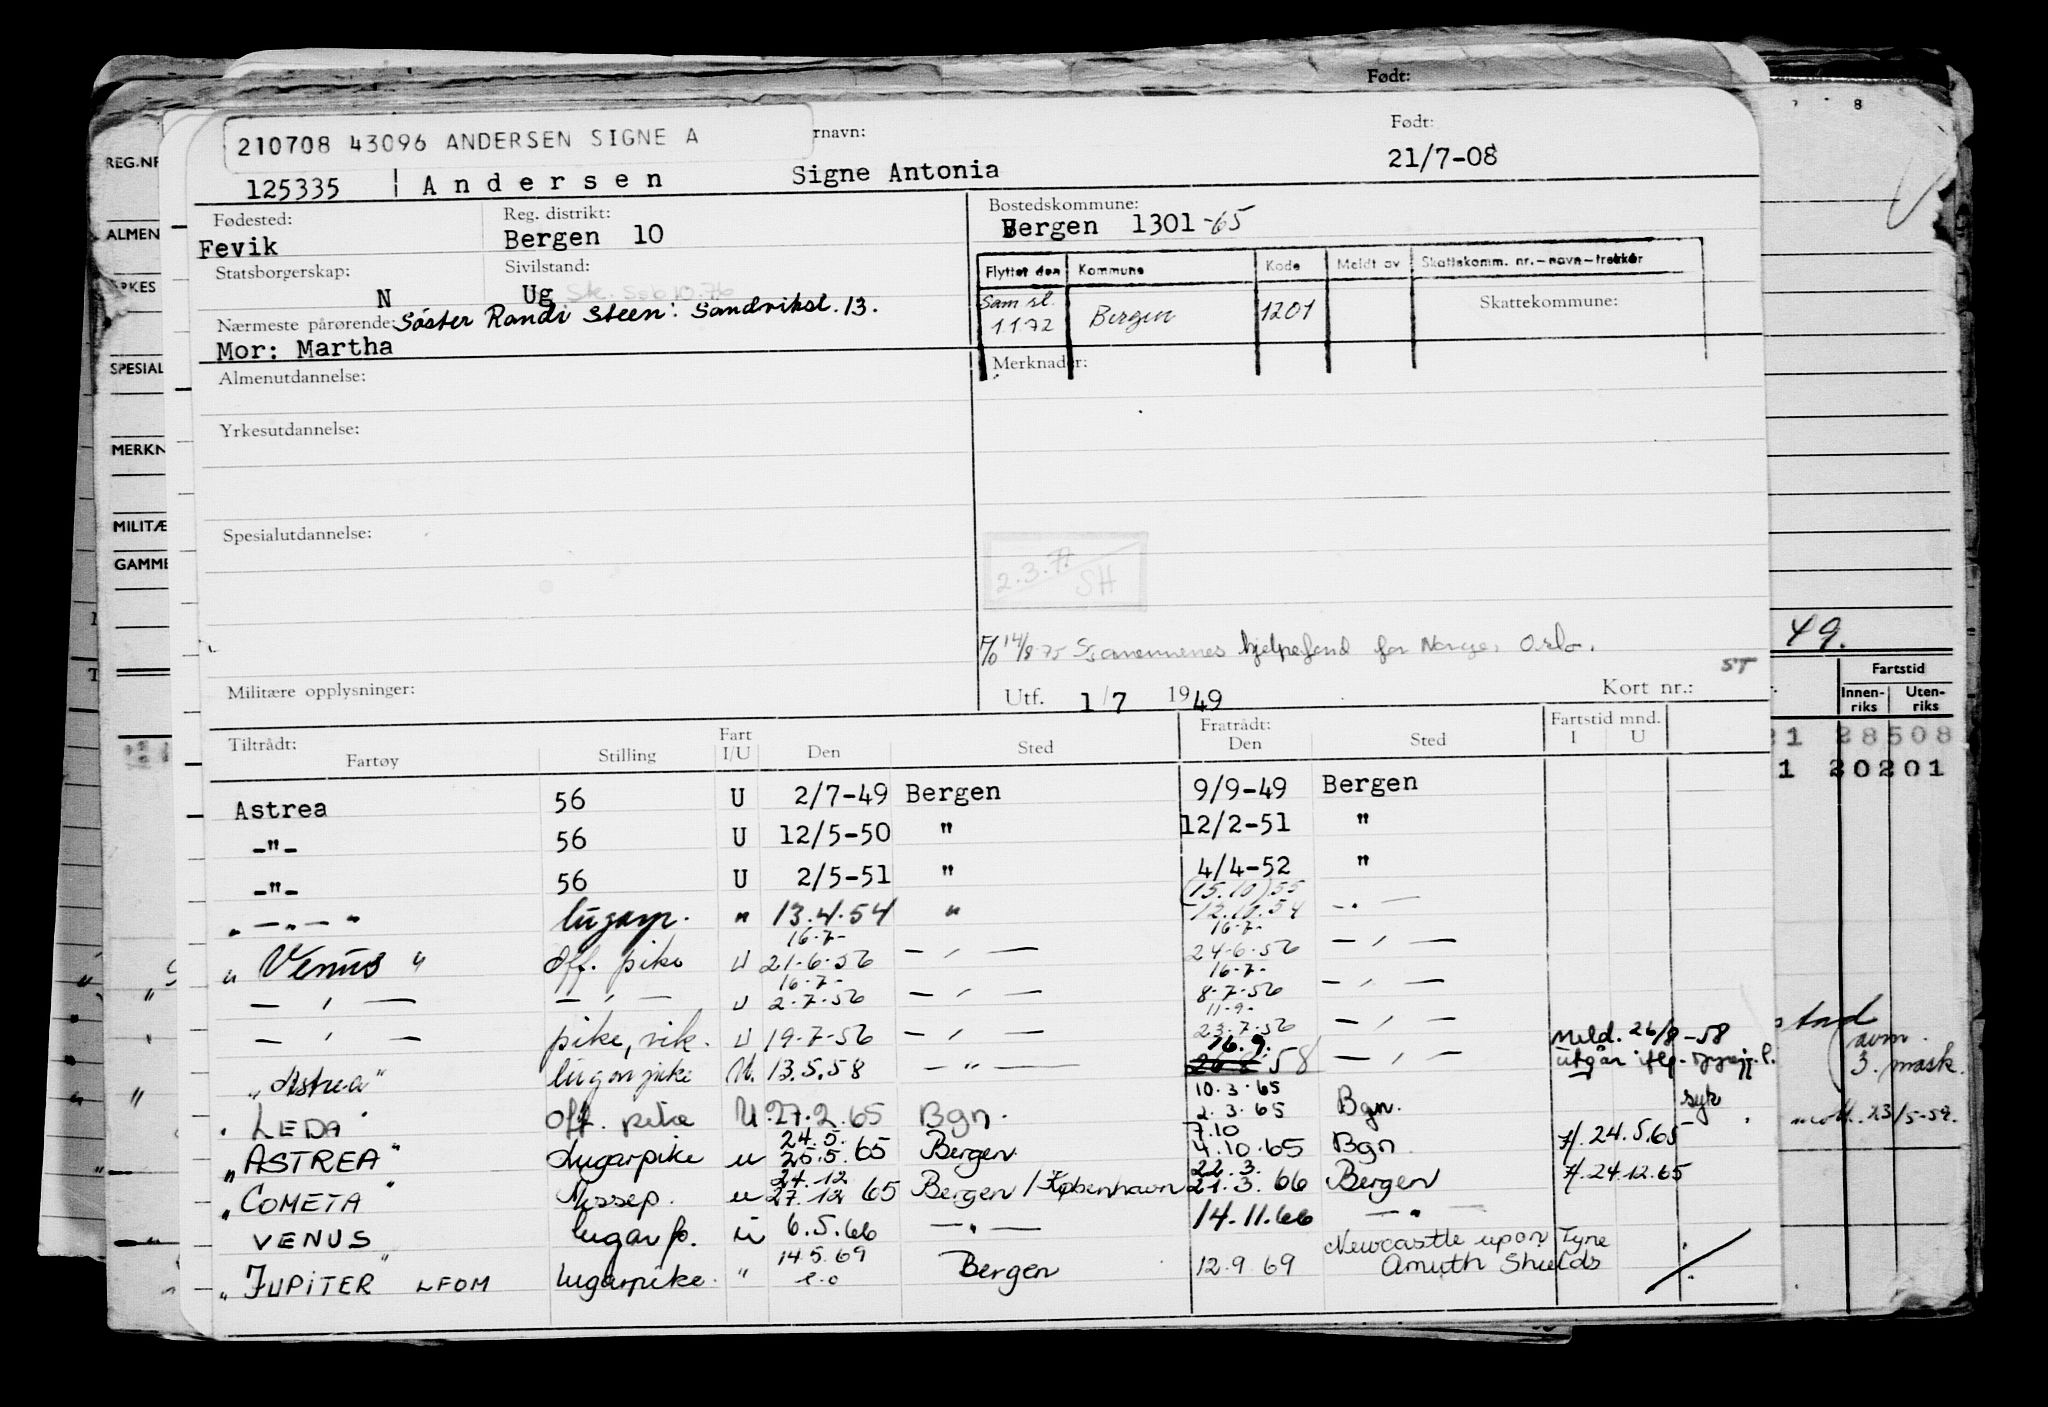 Født:
210708 43096 ANDERSEN SIGNE A
rnavn:
Født:
125335 | Andersen Signe Antonia 21/7-08
Fødested: Reg. distrikt: Bostedskommune:
Fevik Bergen 10 Bergen 1301 -65
Statsborgerskap: Sivilstand:
N Ug
Flyttet den Kommune Kode Meldt av Skattekomm. nr.-navn-trekkår
Sam sl. 1172 Bergen 1201
Skattekommune:
Nærmeste pårørende: Søster Randi Steen: Sandviksl. 13.
Mor: Martha
Merknader:
Almenutdannelse:
Yrkesutdannelse:
Spesialutdannelse:
2.3.71 SH
14/8-75 Sjømennenes hjelpefond for Norge, Oslo.
ST
Militære opplysninger:
Utf. 1/7 1949 Kort nr.:
Tiltrådt: Fratrådt: Fartstid mnd.
Fartøy Stilling Fart I/U Den Sted Den Sted I U
Astrea 56 U 2/7-49 Bergen 9/9-49 Bergen
-"- 56 U 12/5-50 " 12/2-51 "
-"- 56 U 2/5-51 " 4/4-52 "
(15.10) 55
" — " — " lugarp. " 13.4.54 " 12.10.54 — " —
16-7- 16-7-
" Venus " Off. pike U 21-6-56 — " — 24-6-56 — " —
16-7- 16-7-
— " — — " — U 2-7-56 — " — 8-7-56 — " —
11-9-
— " — pike, vik. U 19-7-56 — " — 23-7-56 — " — Meld. 26/8-58
16.9.
"Astrea" lugarpike U. 13.5.58 — " — 26.8 58 — " — utgår
10.3.65 syk
" LEDA " Off. pike U. 27.2.65 Bgn. 2.3.65 Bgn.
24.5. 7.10
" ASTREA " Lugarpike u 25.5.65 Bergen 4.10.65 Bgn 7/. 24.5.65
24.12 22.3.
" COMETA " Messep. u 27.12 65 Bergen/København 21.3.66 Bergen 7/. 24.12.65
VENUS lugarp. u 6.5.66 — " — 14.11.66 — " —
14.5.69 Newcastle upon Tyne
" JUPITER " LFOM lugarpike. " e.o Bergen 12.9.69 Amuth Shields
REG.NR
ALMEN
RKES
SPESIAL
MERKN
MILITÆ
GAMME
8
49.
Fartstid
Innen-riks Uten-riks
21 28508
1 20201
stad
avm.
3. mask.
mott. 23/5-59.